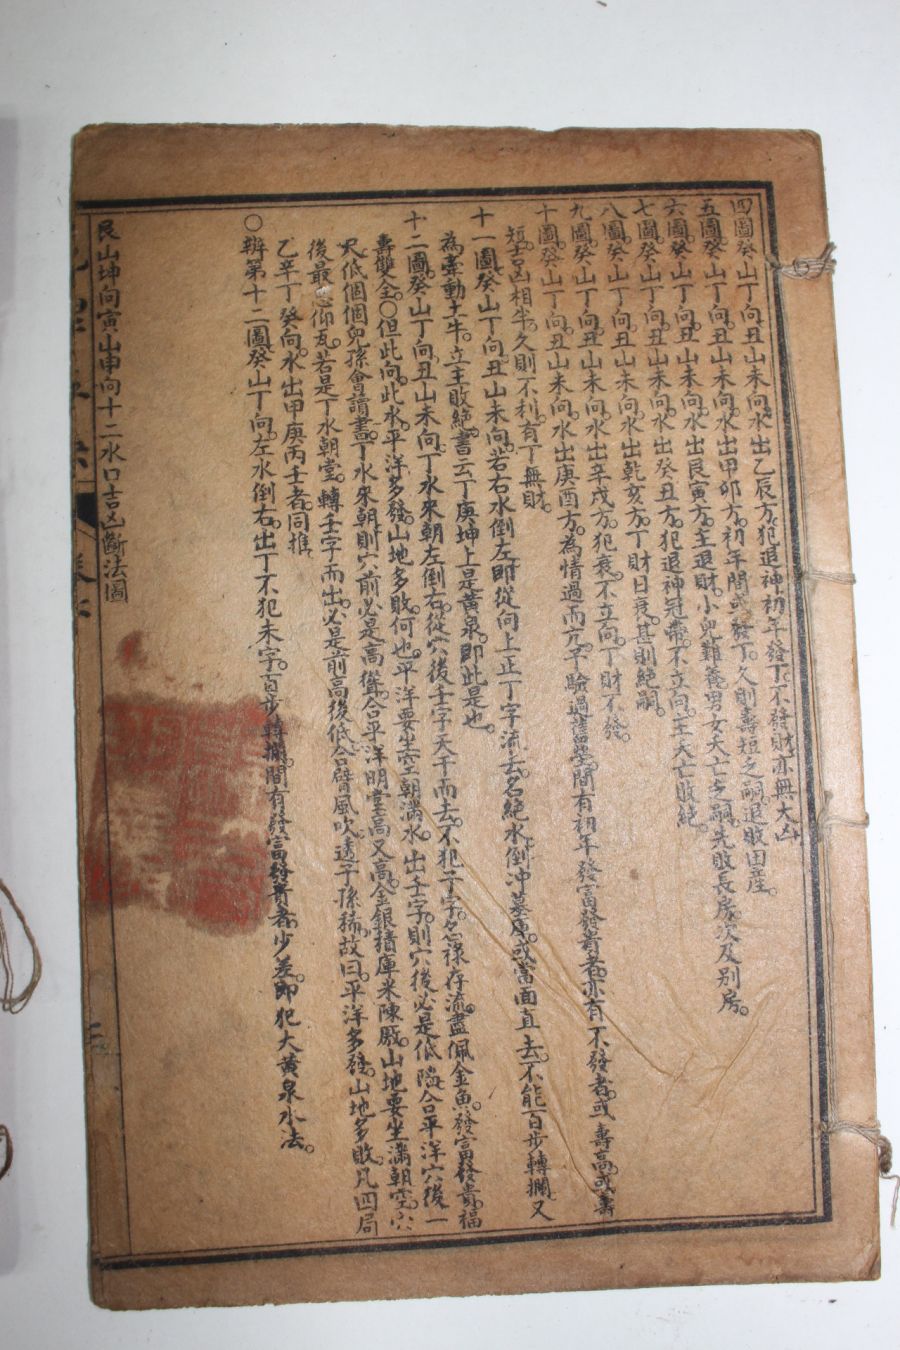 四圖癸山丁向丑山未向水出乙辰方犯退神初年發丁不發財亦無大凶
五圖癸山丁向丑山未向水出甲卯方初年間或發丁久則壽短乏嗣退敗田產
六圖癸山丁向丑山未向水出艮寅方主退財小兒難養男女夭亡乏嗣先敗長房次及別房
七圖癸山丁向丑山未向水出癸丑方犯退神冠帶不立向主夭亡敗絕
八圖癸山丁向丑山未向水出乾亥方丁財日衰甚則絕嗣
九圖癸山丁向丑山未向水出辛戌方犯衰不立向丁財不發
十圖癸山丁向丑山未向水出庚酉方為情過而亢字驗過舊塋間有初年發富發貴者亦有不發者或壽高或壽
短吉凶相半久則不利有丁無財
十一圖癸山丁向丑山未向若右水倒左即從向上正丁字流去名絕水倒冲墓庫或當面直去不能百步轉攔又
為牽動土牛立主敗絕書云丁庚坤上是黃泉即此是也
十二圖癸山丁向丑山未向丁水來朝左倒右從穴後壬字天干而去不犯子字名祿存流盡佩金魚發富發貴福
壽雙全○但此向此水平洋多發山地多敗何也平洋要坐空朝滿水出壬字則穴後必是低陷合平洋穴後一
尺低個個兒孫會讀書丁水來朝則穴前必是高聳合平洋明堂高又高金銀積庫米陳廒山地要坐滿朝空穴
後最忌仰瓦若是丁水朝堂轉壬字而出必是前高後低合臂風吹遠子孫稀故曰平洋多發山地多敗凡四局
乙辛丁癸向水出甲庚丙壬者同推
○辯第十二圖癸山丁向左水倒右出丁不犯未字百步轉攔間有發富發貴者少差即犯大黃泉水法
艮山坤向寅山申向十二水口吉凶斷法圖